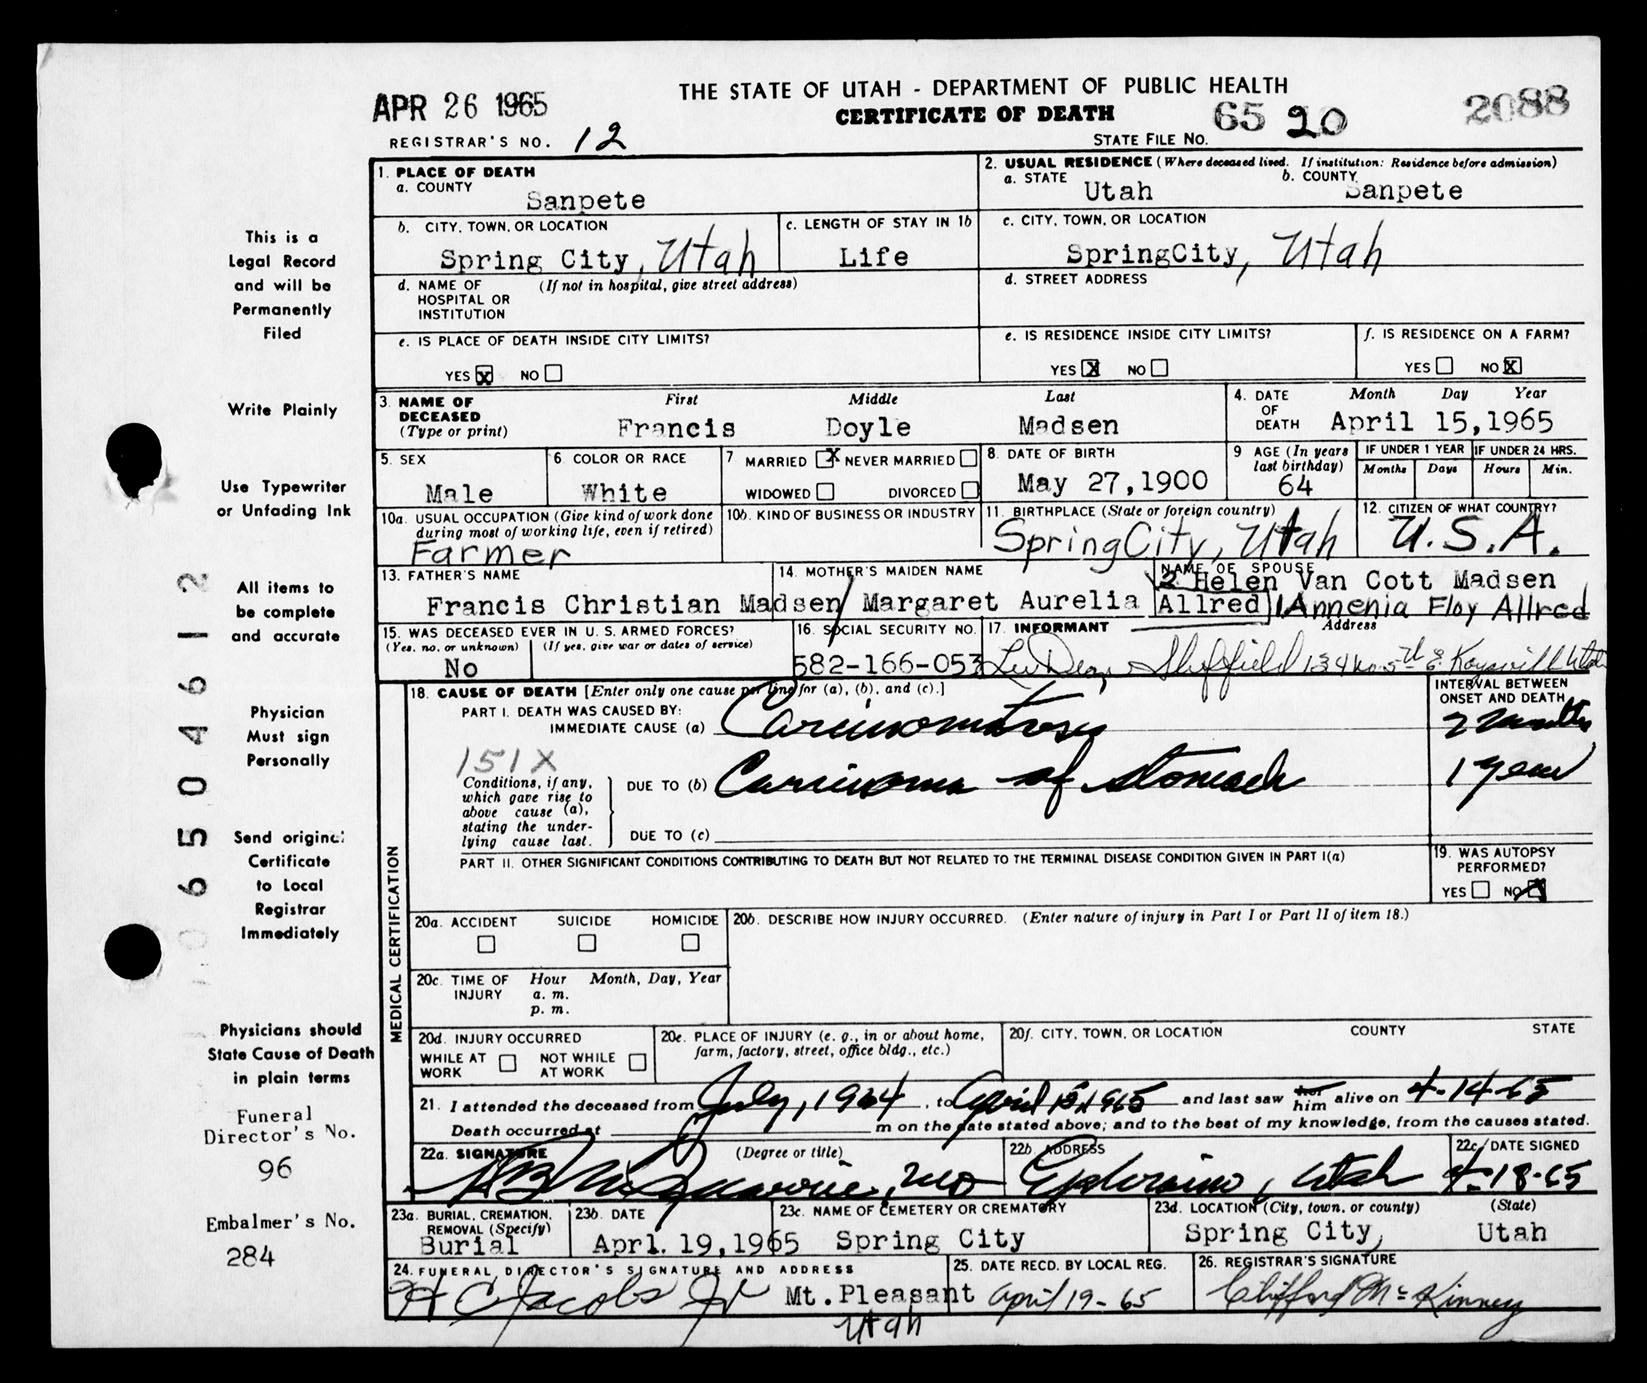 THE STATE OF UTAH - DEPARTMENT OF PUBLIC HEALTH
CERTIFICATE OF DEATH
APR 26 1965
65 20
2088
REGISTRAR'S NO. 12
STATE FILE NO.
1. PLACE OF DEATH
a. COUNTY
Sanpete
2. USUAL RESIDENCE (Where deceased lived. If institution: Residence before admission)
a. STATE Utah
b. COUNTY Sanpete
b. CITY, TOWN, OR LOCATION
Spring City, Utah
c. LENGTH OF STAY IN 1b
Life
c. CITY, TOWN, OR LOCATION
SpringCity, Utah
d. NAME OF HOSPITAL OR INSTITUTION (If not in hospital, give street address)
d. STREET ADDRESS
e. IS PLACE OF DEATH INSIDE CITY LIMITS?
YES X NO
e. IS RESIDENCE INSIDE CITY LIMITS?
YES X NO
f. IS RESIDENCE ON A FARM?
YES NO X
3. NAME OF DECEASED (Type or print)
First Middle Last
Francis Doyle Madsen
4. DATE OF DEATH
Month Day Year
April 15,1965
5. SEX
Male
6 COLOR OR RACE
White
7 MARRIED X NEVER MARRIED
WIDOWED DIVORCED
8. DATE OF BIRTH
May 27,1900
9 AGE (In years last birthday)
64
IF UNDER 1 YEAR
Months Days
IF UNDER 24 HRS.
Hours Min.
10a. USUAL OCCUPATION (Give kind of work done during most of working life, even if retired)
Farmer
10b. KIND OF BUSINESS OR INDUSTRY
11. BIRTHPLACE (State or foreign country)
SpringCity, Utah
12. CITIZEN OF WHAT COUNTRY?
U.S.A.
13. FATHER'S NAME
Francis Christian Madsen
14. MOTHER'S MAIDEN NAME
Margaret Aurelia Allred
NAME OF SPOUSE
2 Helen Van Cott Madsen
1 Annenia Eloy Allred
15. WAS DECEASED EVER IN U. S. ARMED FORCES?
(Yes, no, or unknown) (If yes, give war or dates of service)
No
16. SOCIAL SECURITY NO.
582-166-053
17. INFORMANT Address
Sheffield 134 No 5th E. Kaysville Utah
18. CAUSE OF DEATH [Enter only one cause per line for (a), (b), and (c).]
PART I. DEATH WAS CAUSED BY:
IMMEDIATE CAUSE (a) Carcinomatosis
INTERVAL BETWEEN ONSET AND DEATH
2 months
151X
Conditions, if any, which gave rise to above cause (a), stating the underlying cause last.
DUE TO (b) Carcinoma of stomach
1 year
DUE TO (c)
PART II. OTHER SIGNIFICANT CONDITIONS CONTRIBUTING TO DEATH BUT NOT RELATED TO THE TERMINAL DISEASE CONDITION GIVEN IN PART I(a)
19. WAS AUTOPSY PERFORMED?
YES NO X
MEDICAL CERTIFICATION
20a. ACCIDENT SUICIDE HOMICIDE
20b. DESCRIBE HOW INJURY OCCURRED. (Enter nature of injury in Part I or Part II of item 18.)
20c. TIME OF INJURY
Hour Month, Day, Year
a. m.
p. m.
20d. INJURY OCCURRED
WHILE AT WORK NOT WHILE AT WORK
20e. PLACE OF INJURY (e. g., in or about home, farm, factory, street, office bldg., etc.)
20f. CITY, TOWN, OR LOCATION COUNTY STATE
21. I attended the deceased from July, 1964, to April 15, 1965 and last saw her him alive on 4-14-65
Death occurred at m on the date stated above; and to the best of my knowledge, from the causes stated.
22a. SIGNATURE (Degree or title)
MD
22b. ADDRESS
Ephraim, Utah
22c. DATE SIGNED
4-18-65
23a. BURIAL, CREMATION, REMOVAL (Specify)
Burial
23b. DATE
Aprl. 19,1965
23c. NAME OF CEMETERY OR CREMATORY
Spring City
23d. LOCATION (City, town, or county) (State)
Spring City, Utah
24. FUNERAL DIRECTOR'S SIGNATURE AND ADDRESS
H C Jacobs Jr Mt.Pleasant
Utah
25. DATE RECD. BY LOCAL REG.
April 19-65
26. REGISTRAR'S SIGNATURE
Clifford McKinney
This is a
Legal Record
and will be
Permanently
Filed
Write Plainly
Use Typewriter
or Unfading Ink
All items to
be complete
and accurate
Physician
Must sign
Personally
Send original
Certificate
to Local
Registrar
Immediately
Physicians should
State Cause of Death
in plain terms
Funeral
Director's No.
96
Embalmer's No.
284
65 04612